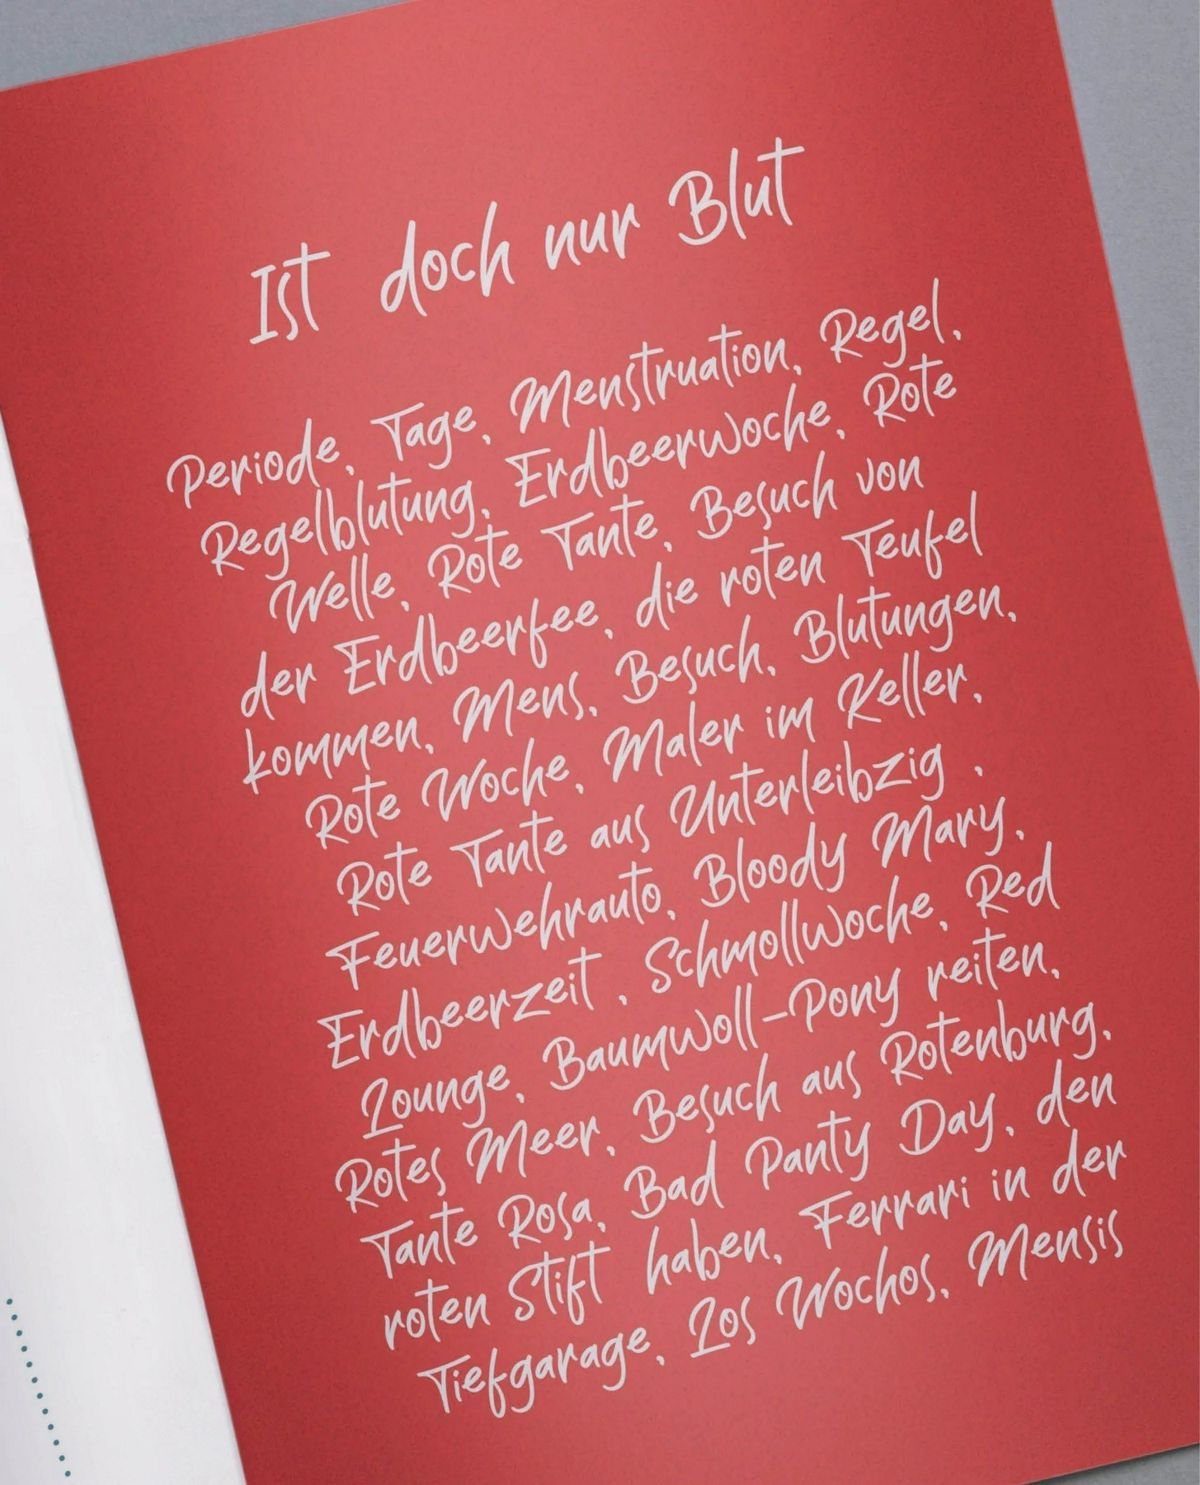 Ist doch nur Blut
Periode, Tage, Menstruation, Regel,
Regelblutung, Erdbeerwoche, Rote
Welle, Rote Tante, Besuch von
der Erdbeerfee, die roten Teufel
kommen, Mens, Besuch, Blutungen,
Rote Woche, Maler im Keller,
Rote Tante aus Unterleibzig ,
Feuerwehrauto, Bloody Mary,
Erdbeerzeit , Schmollwoche, Red
Lounge, Baumwoll-Pony reiten,
Rotes Meer, Besuch aus Rotenburg,
Tante Rosa, Bad Panty Day, den
roten Stift haben, Ferrari in der
Tiefgarage, Los Wochos, Mensis